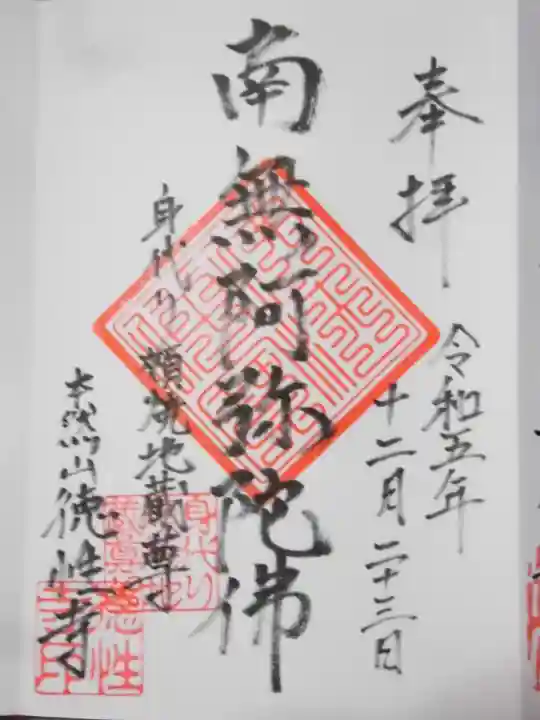 奉拝
令和五年
十二月二十三日
南無阿弥陀佛
身代り
頬焼地蔵尊
本然山徳性寺